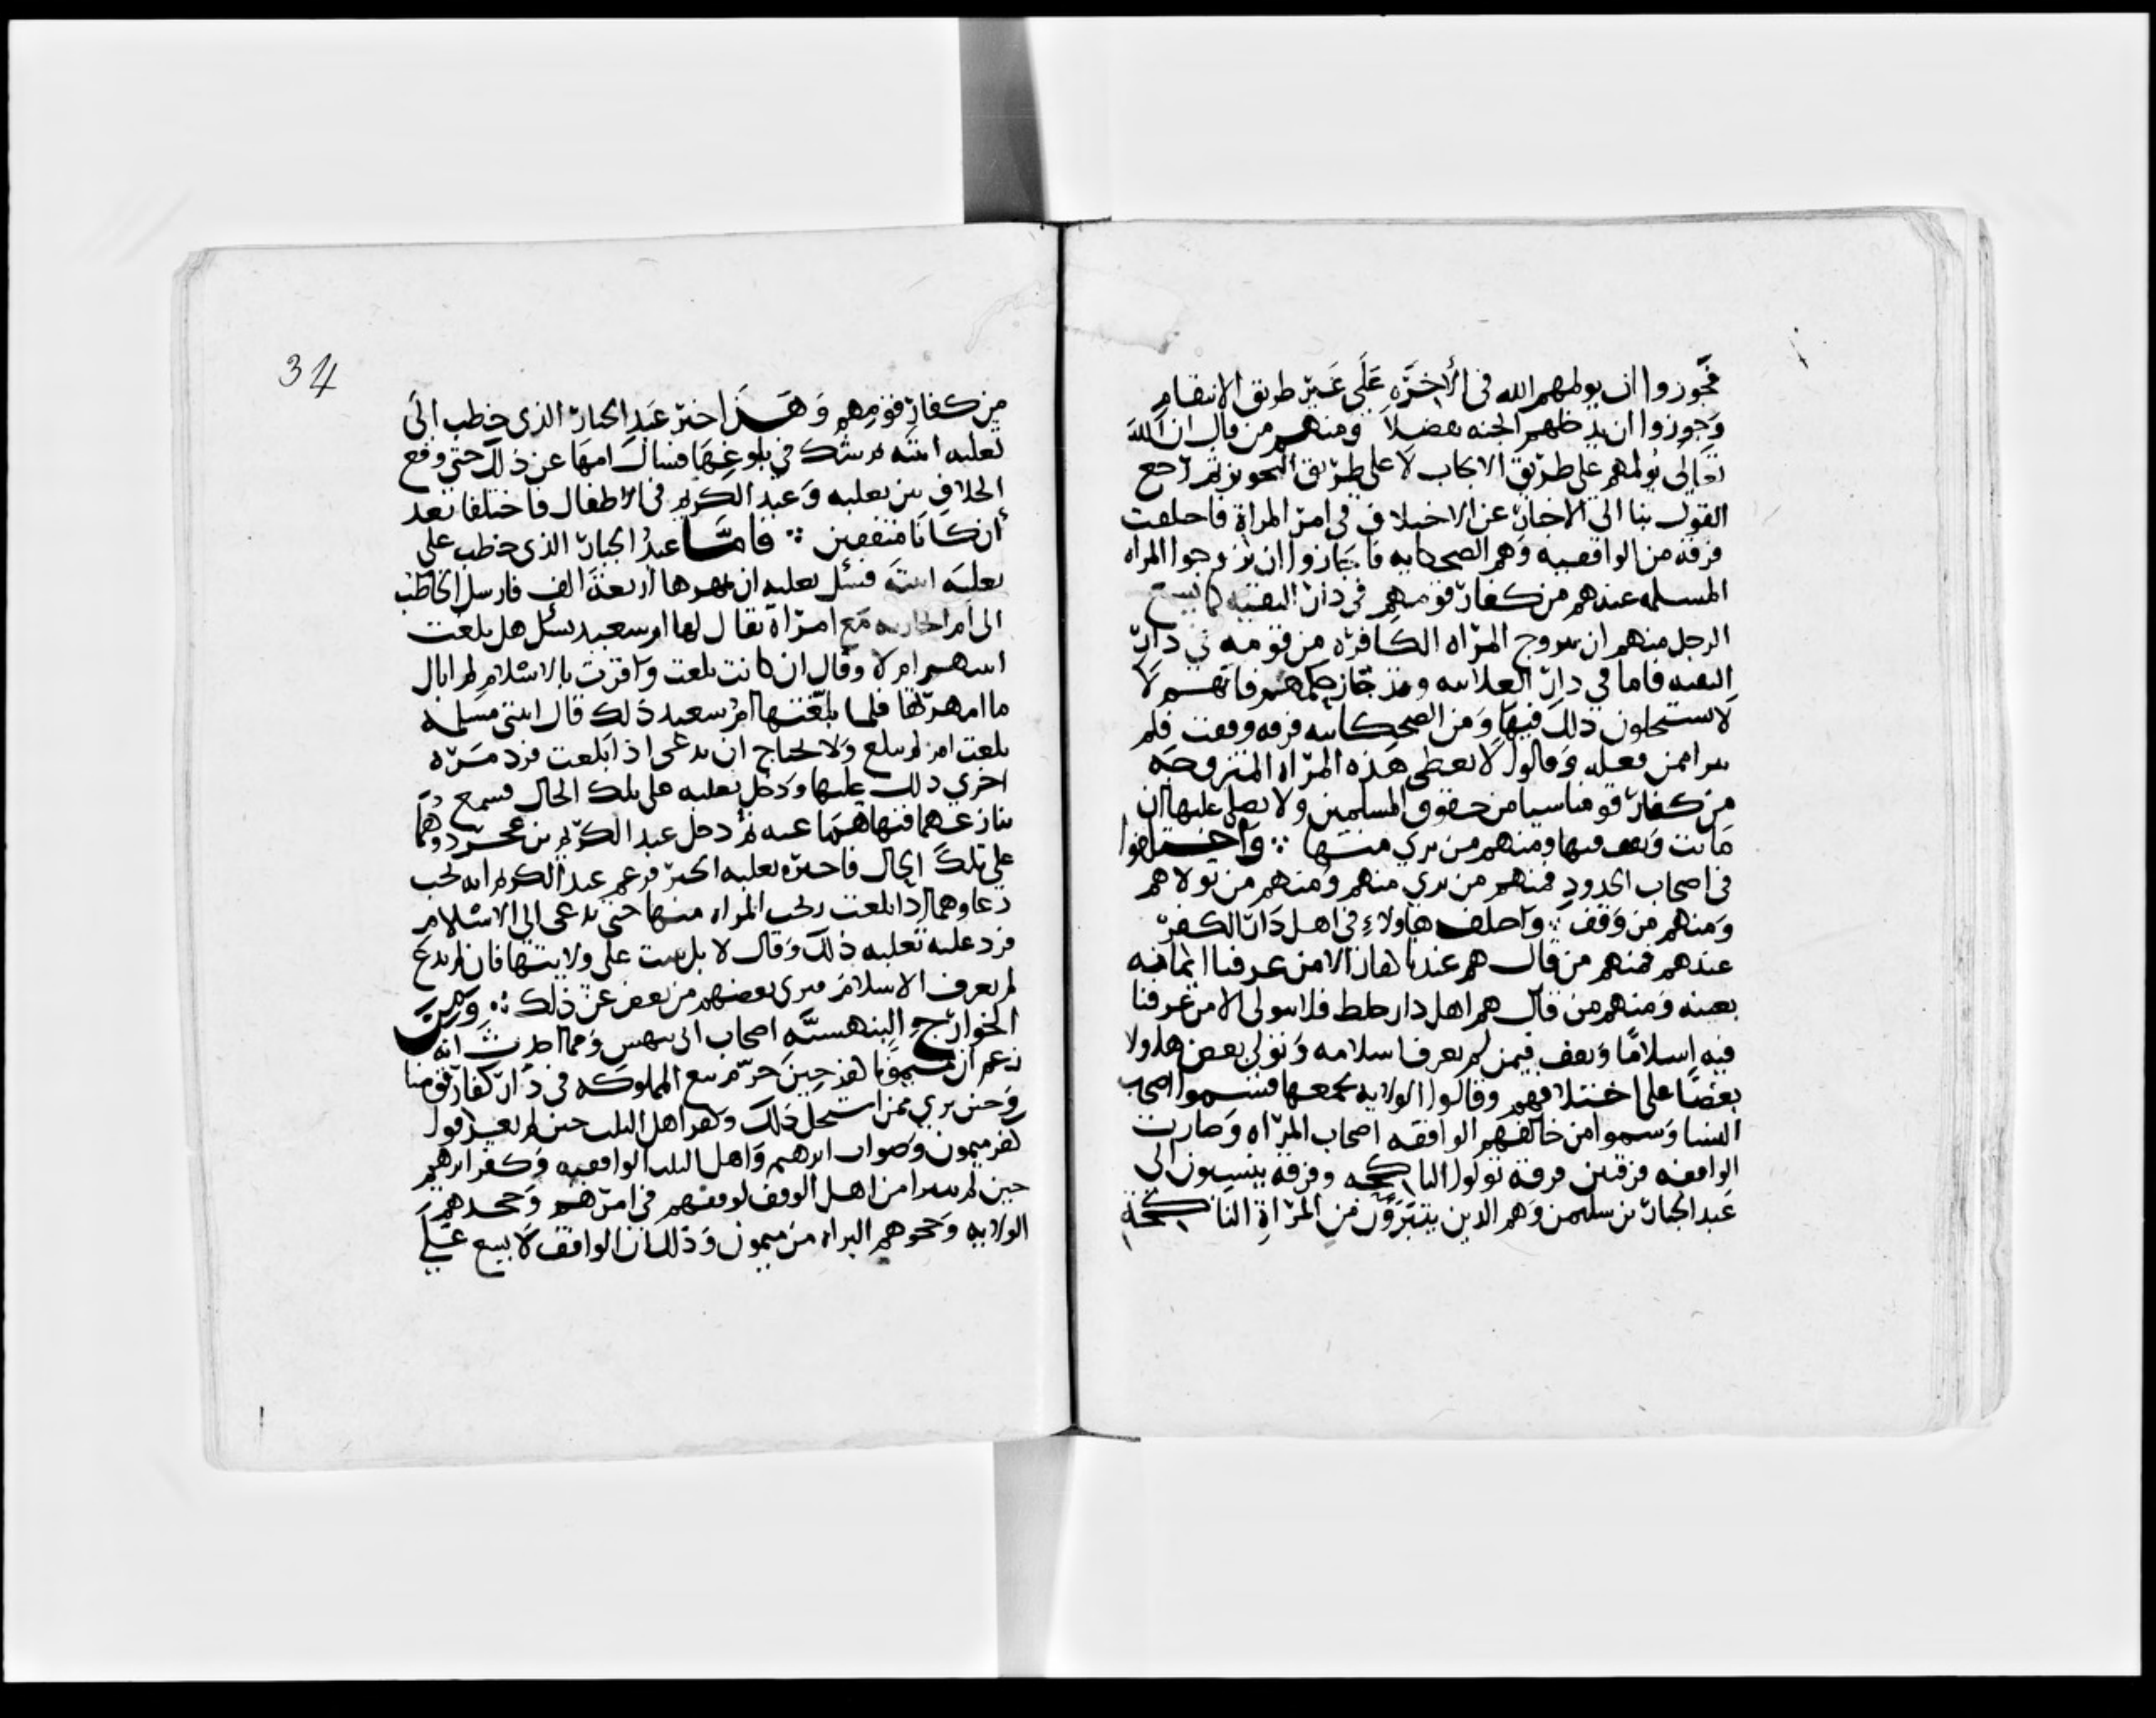 فجوزوا ان يولمهم الله في الأخرَه عَلى غَير طريق الانتقام
وَجوزوا ان يدخلهم الجنه تفضلاً ومنهم من قال ان اللهَ
تعَالى يُولمهم على طريق الايجاب لا على طريق التجويز ثم رجع
القول بنا الى الاخبار عن الاختلاف في امر المراة فاختلفت
فرقه من الواقفيه وهم الضحاكيه فاجَازوا ان يزوجوا المراه
المسلمه عندهم من كفار قومهم في دار التقيه كما يسع
الرجل منهم ان يتزوج المرْاه الكَافره من قومه في دار
التقيه فاما في دار العلانيه وقد جَاز حكمهم فانهم لا
لا يستحلون ذلك فيهَا وَمن الضحاكيه فرقه وقفت فلم
تبرا ممن فعله وَقالوا لا نعطي هَذه المرْاه المتزوجَه
من كفار قومنا شيا من حقوق المسلمين ولا نصلي عليها ان
مَاتت وَنقف فيها ومنهم من بري منها ∴ وَاختلفوا
في اصحاب الحدود فمنهم من بري منهم وَمنهم من تولاهم
وَمنهم من وَقف ∴ وَاختلف هَاولاءِ في اهل دَار الكفر
عندهم فمنهم من قال هم عندنا كفار الا من عرفنا ايمانه
بعينه وَمنهم من قال هم اهل دار خلط فلا نتولى الا من عَرفنا
فيه اِسلامًا وَنقف فيمن لم نعرف اسلامه وَتولي بعض هاولا
بعضًا على اختلافهم وقالوا الولايه تجمعها فسموا اصحاب
النسا وَسموا من خالفهم الواقفه اصحاب المرْاه وَصارت
الواقفه فرقتين فرقه تولوا الناكحه وفرقه ينسبون الى
عَبد الجبار بن سليمن وَهم الدين يتبَرؤن من المرْاةِ الناكحَة
34
من كفارِ قومِهم وَهَذا خبر عَبدِ الجبار الذي خطب الَى
ثعلبه ابنته ثم شك في بلوغها فسال امهَا عن ذلك حَتى وقع
الخلاف بين ثعلبه وَعبد الكريم في الاطفال فاختلفا بعد
أن كانا متفقين ∴ فامَّا عبدُ الجبار الذي خطب على
ثعلبَه ابنتَه فسئل ثعلبه ان يمهرها اربعةَ الف فارسل الخاطب
الى ام الجاريه مَع امرْاه يقال لها ام سعيد يسئل هل بلغت
ابنتهم ام لا وقال ان كانت بلغت وَاقرت بالاسْلامِ لم ابال
ما امهرتها فلما بلّغتها ام سعيد ذلك قال ابنتي مسلمه
بلغت ام لم تبلغ وَلا تحتاج ان تدعى اذا بَلغت فرد مَرّه
اخرى ذلك عليها وَدخل ثعلبه على تلك الحال فسمع
تنازعهما فنهاهمَا عنه ثمّ دخل عبد الكريم بن عجرد وَهُما
على تلك الحال فاخبره ثعلبه الخبر فزعم عبد الكريم انه يجب
دعاوهما اذا بلغت وتجب البراه منها حتى تدعى الى الاسْلام
فرد عليه ثعلبه ذلك وَقال لا بل نثبت على ولايتها فان لم تدع
لم تعرف الاسلامَ فبرى بعضهم من بعض عن ذلك ∴ وَمِنَ
الخوارج البنهسيَّه اصحاب ابي بيهس وَمما احدث انه
زعم ان ميمونا كفر حِينَ حرّم بيع المملوكه في دَار كفار قومنا
وَحين بري ممن استحَلّ ذلك وَكفر اهل الثبت حين لم يعرفوا
كفر ميمون وَصواب ابرهيم وَاهل الثبت الواقفيه وَكفر ابرهيم
حين لم يتبرا من اهل الوقف لوقفهم في امرهم وَجحدهم
الولايه وَجحدهم البراه من ميمون وَذلك ان الواقف لا يسع عَلى